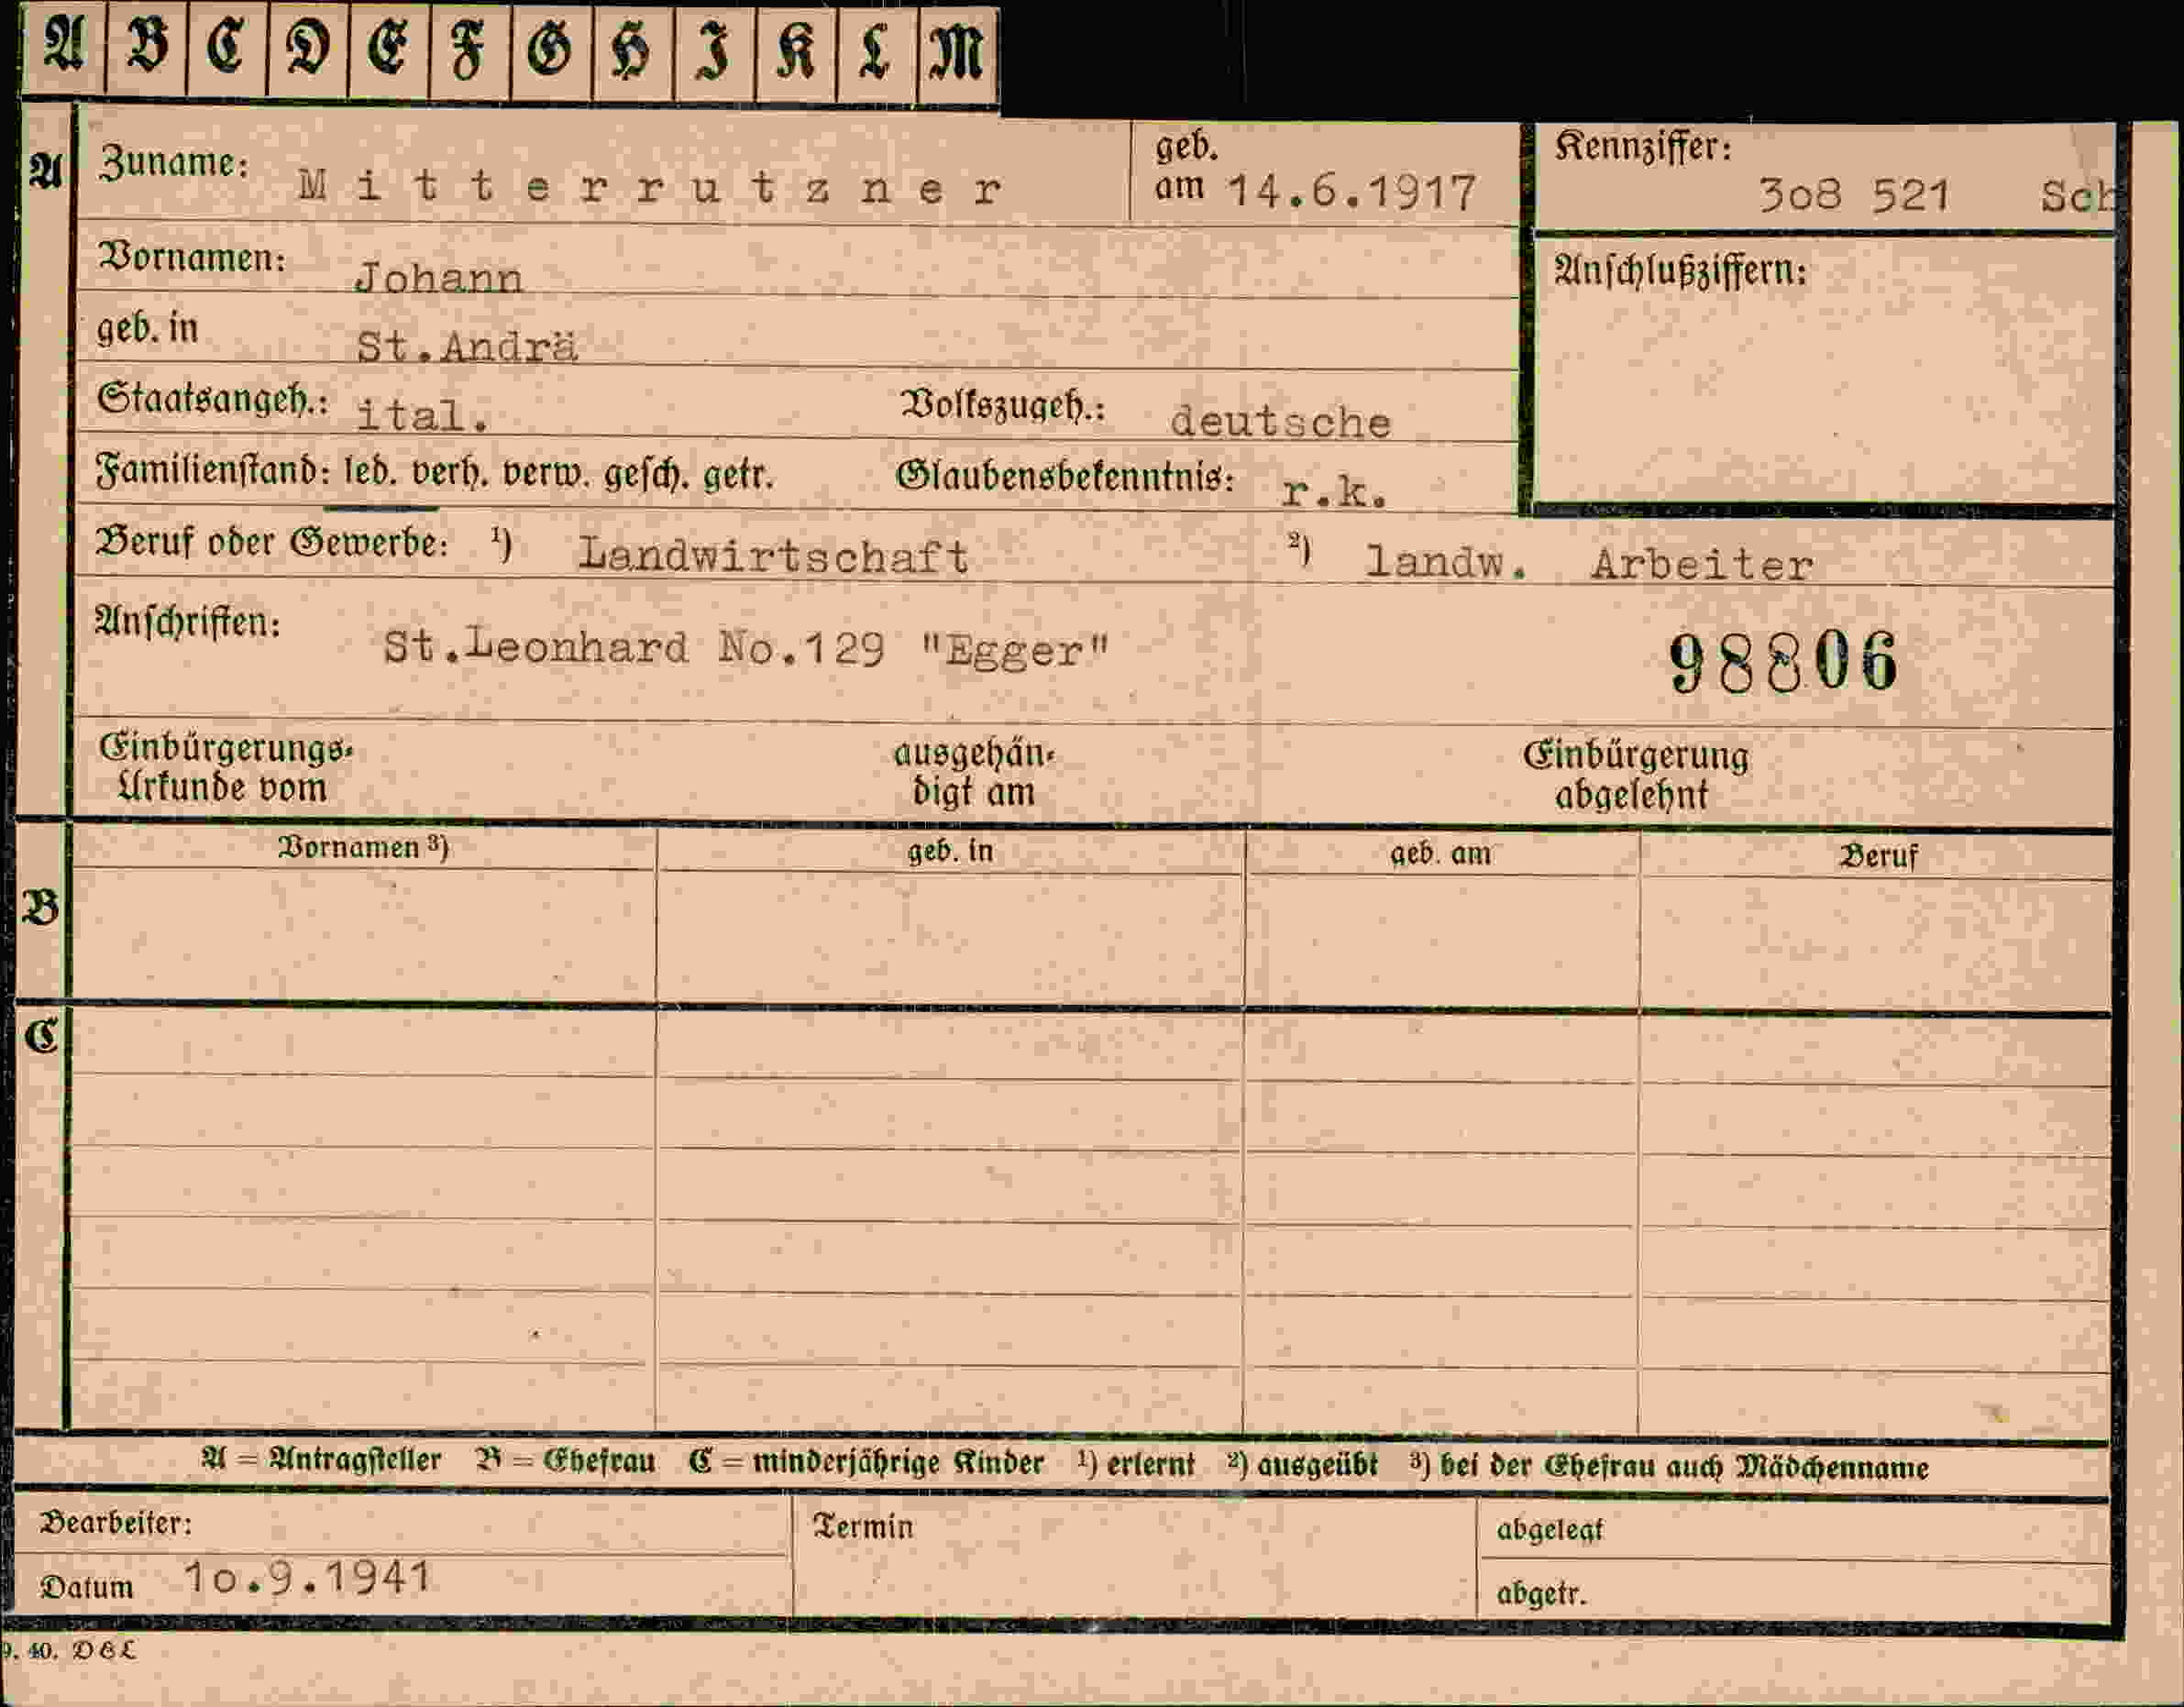 A B C D E F G H I K L M
A Zuname: Mitterrutzner geb. am 14.6.1917 Kennziffer: 3o8 521 Sch
Vornamen: Johann Anschlußziffern:
geb. in St.Andrä
Staatsangeh.: ital. Volkszugeh.: deutsche
Familienstand: led. verh. verw. gesch. getr. Glaubensbekenntnis: r.k.
Beruf oder Gewerbe: ¹) Landwirtschaft ²) landw. Arbeiter
Anschriften: St.Leonhard No.129 "Egger" 98806
Einbürgerungs- ausgehän- Einbürgerung
Urkunde vom digt am abgelehnt
Vornamen ³) geb. in geb. am Beruf
B
C
A = Antragsteller B = Ehefrau C = minderjährige Kinder ¹) erlernt ²) ausgeübt ³) bei der Ehefrau auch Mädchenname
Bearbeiter: Termin abgelegt
Datum 1o.9.1941 abgetr.
9. 40. DBL